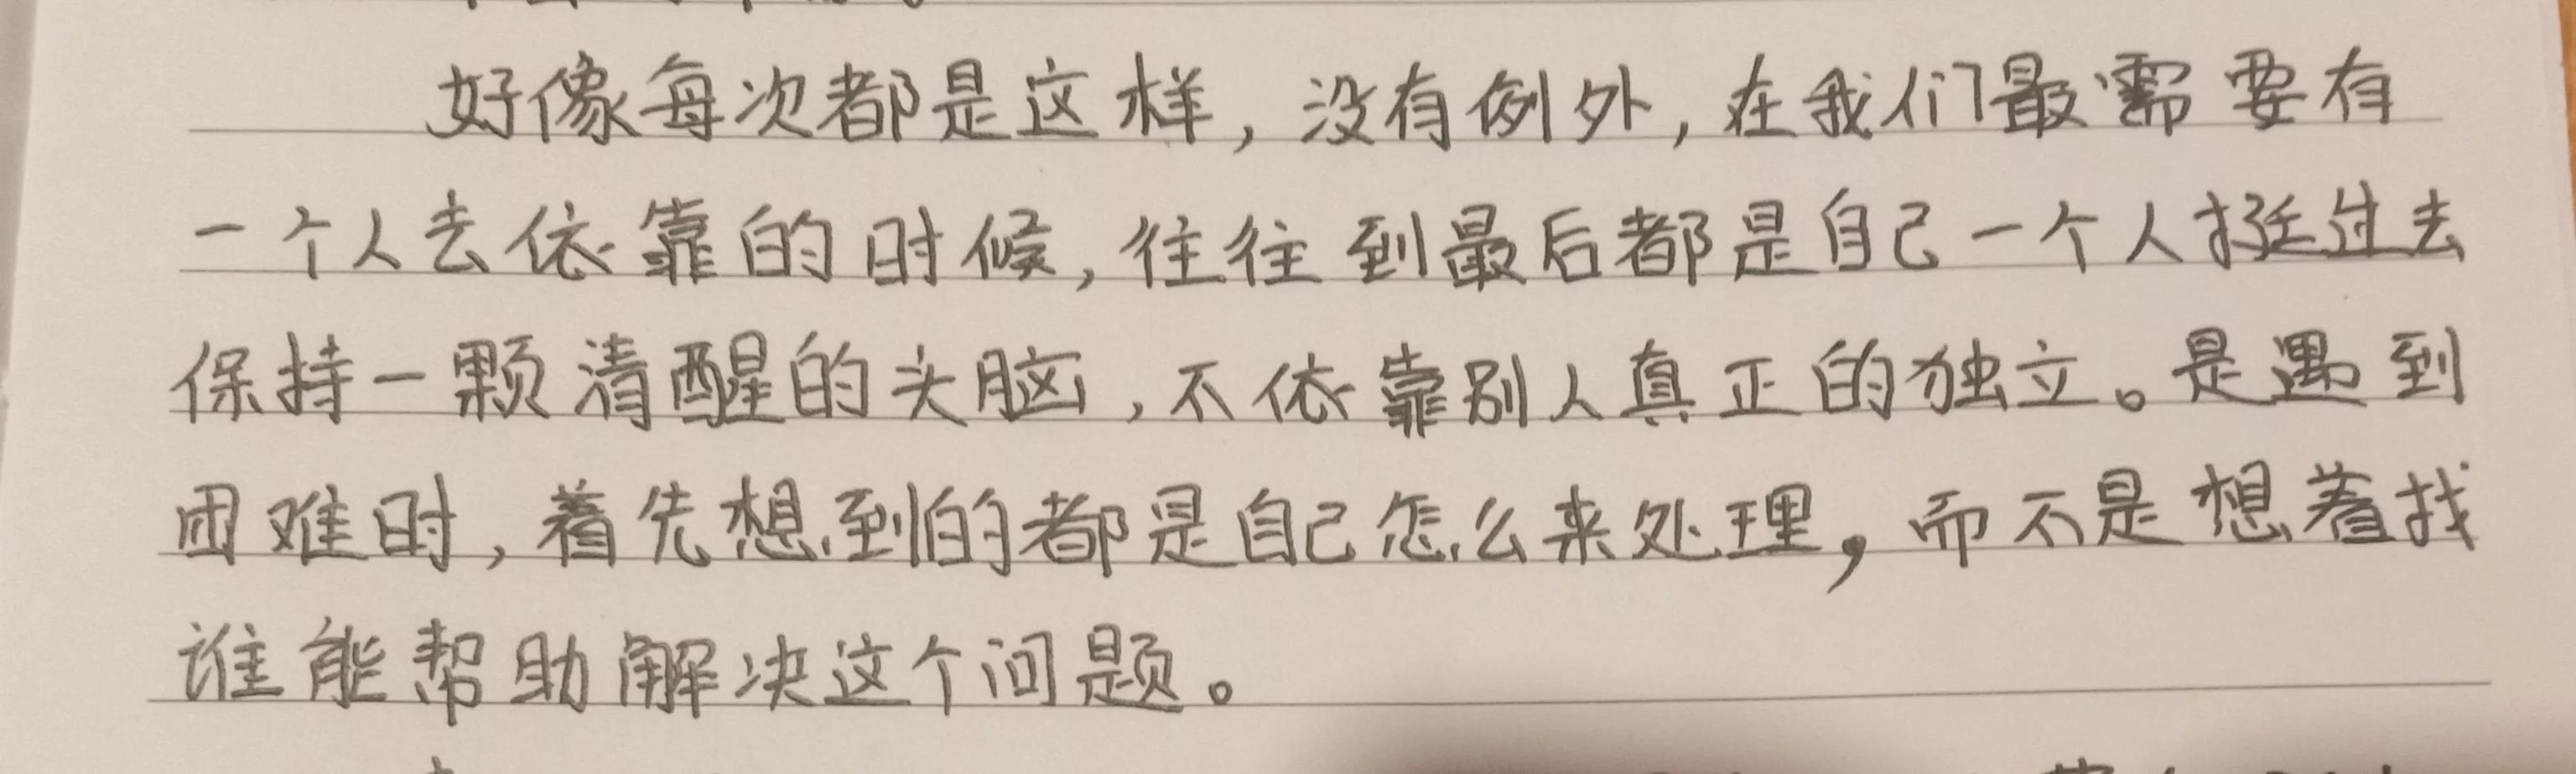 好像每次都是这样，没有例外，在我们最需要有
一个人去依靠的时候，往往到最后都是自己一个人挺过去
保持一颗清醒的头脑，不依靠别人真正的独立。是遇到
困难时，着先想到的都是自己怎么来处理，而不是想着找
谁能帮助解决这个问题。